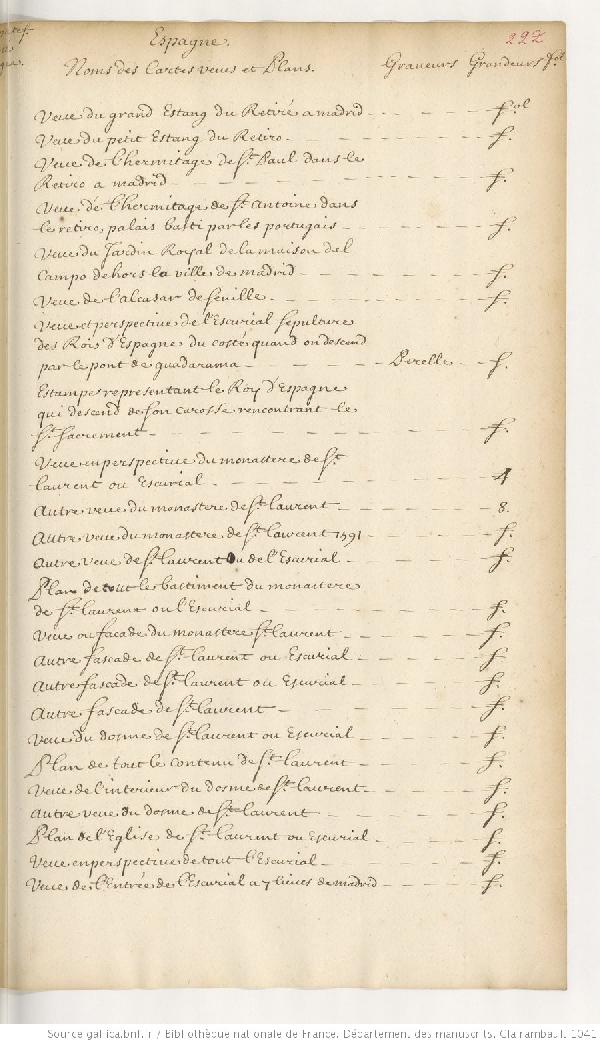 Espagne. 227
Noms des Cartes veues et Plans. Graveurs Grandeurs fol
Veue du grand Estang du Retiré a madrid fol
Veue du petit Estang du Retiro f.
Veue de l'hermitage de St. Paul dans le
Retiro a madrid f.
Veue de l'hermitage de St. Antoine dans
le retiro, palais basti par les portugais f.
Veue du Jardin Royal de la maison del
Campo dehors la ville de madrid f.
Veue de l'alcasar de seville f.
Veue et perspective de l'Escurial sepulture
des Rois d'Espagne du costé quand on descend
par le pont de guadarama Perelle f.
Estampes representant le Roy d'Espagne
qui descend de son carosse rencontrant le
St. Sacrement f.
Veue en perspective du monastere de St.
laurent ou Escurial 4
Autre veue du monastere de St. laurent 8.
Autre veue du monastere de St. laurent 1591 f.
Autre veue de St. laurent Ou de l'Escurial f.
Plan de tout le bastiment du monastere
de St. laurent ou l'Escurial f.
Veue ou facade du monastere St. laurent f.
Autre fascade de St. laurent ou Escurial f.
Autre fascade de St. laurent ou Escurial f.
Autre fascade de St. laurent f.
Veue du dosme de St. laurent ou Escurial f.
Plan de tout le contenu de St. laurent f.
Veue de l'interieur du dosme de St. laurent f.
Autre veue du dosme de St. laurent f.
Plan de l'Eglise de St. laurent ou Escurial f.
Veue en perspective de tout l'Escurial f.
Veue de l'Entrée de l'Escurial a 7 lieues de madrid f.
Source gallica.bnf.fr / Bibliothèque nationale de France. Département des manuscrits. Clairambault 1041